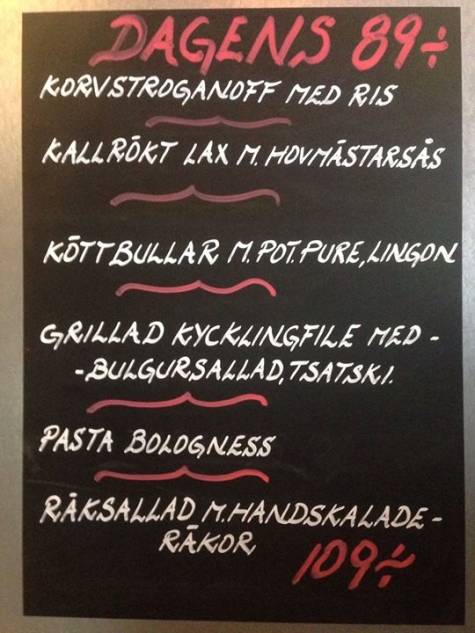 DAGENS 89:-
KORVSTROGANOFF MED RIS
KALLRÖKT LAX M. HOVMÄSTARSÅS
KÖTTBULLAR M. POT. PURE, LINGON
GRILLAD KYCKLINGFILE MED -
-BULGURSALLAD, TSATSKI.
PASTA BOLOGNESS
RÄKSALLAD M. HANDSKALADE-
RÄKOR
109:-